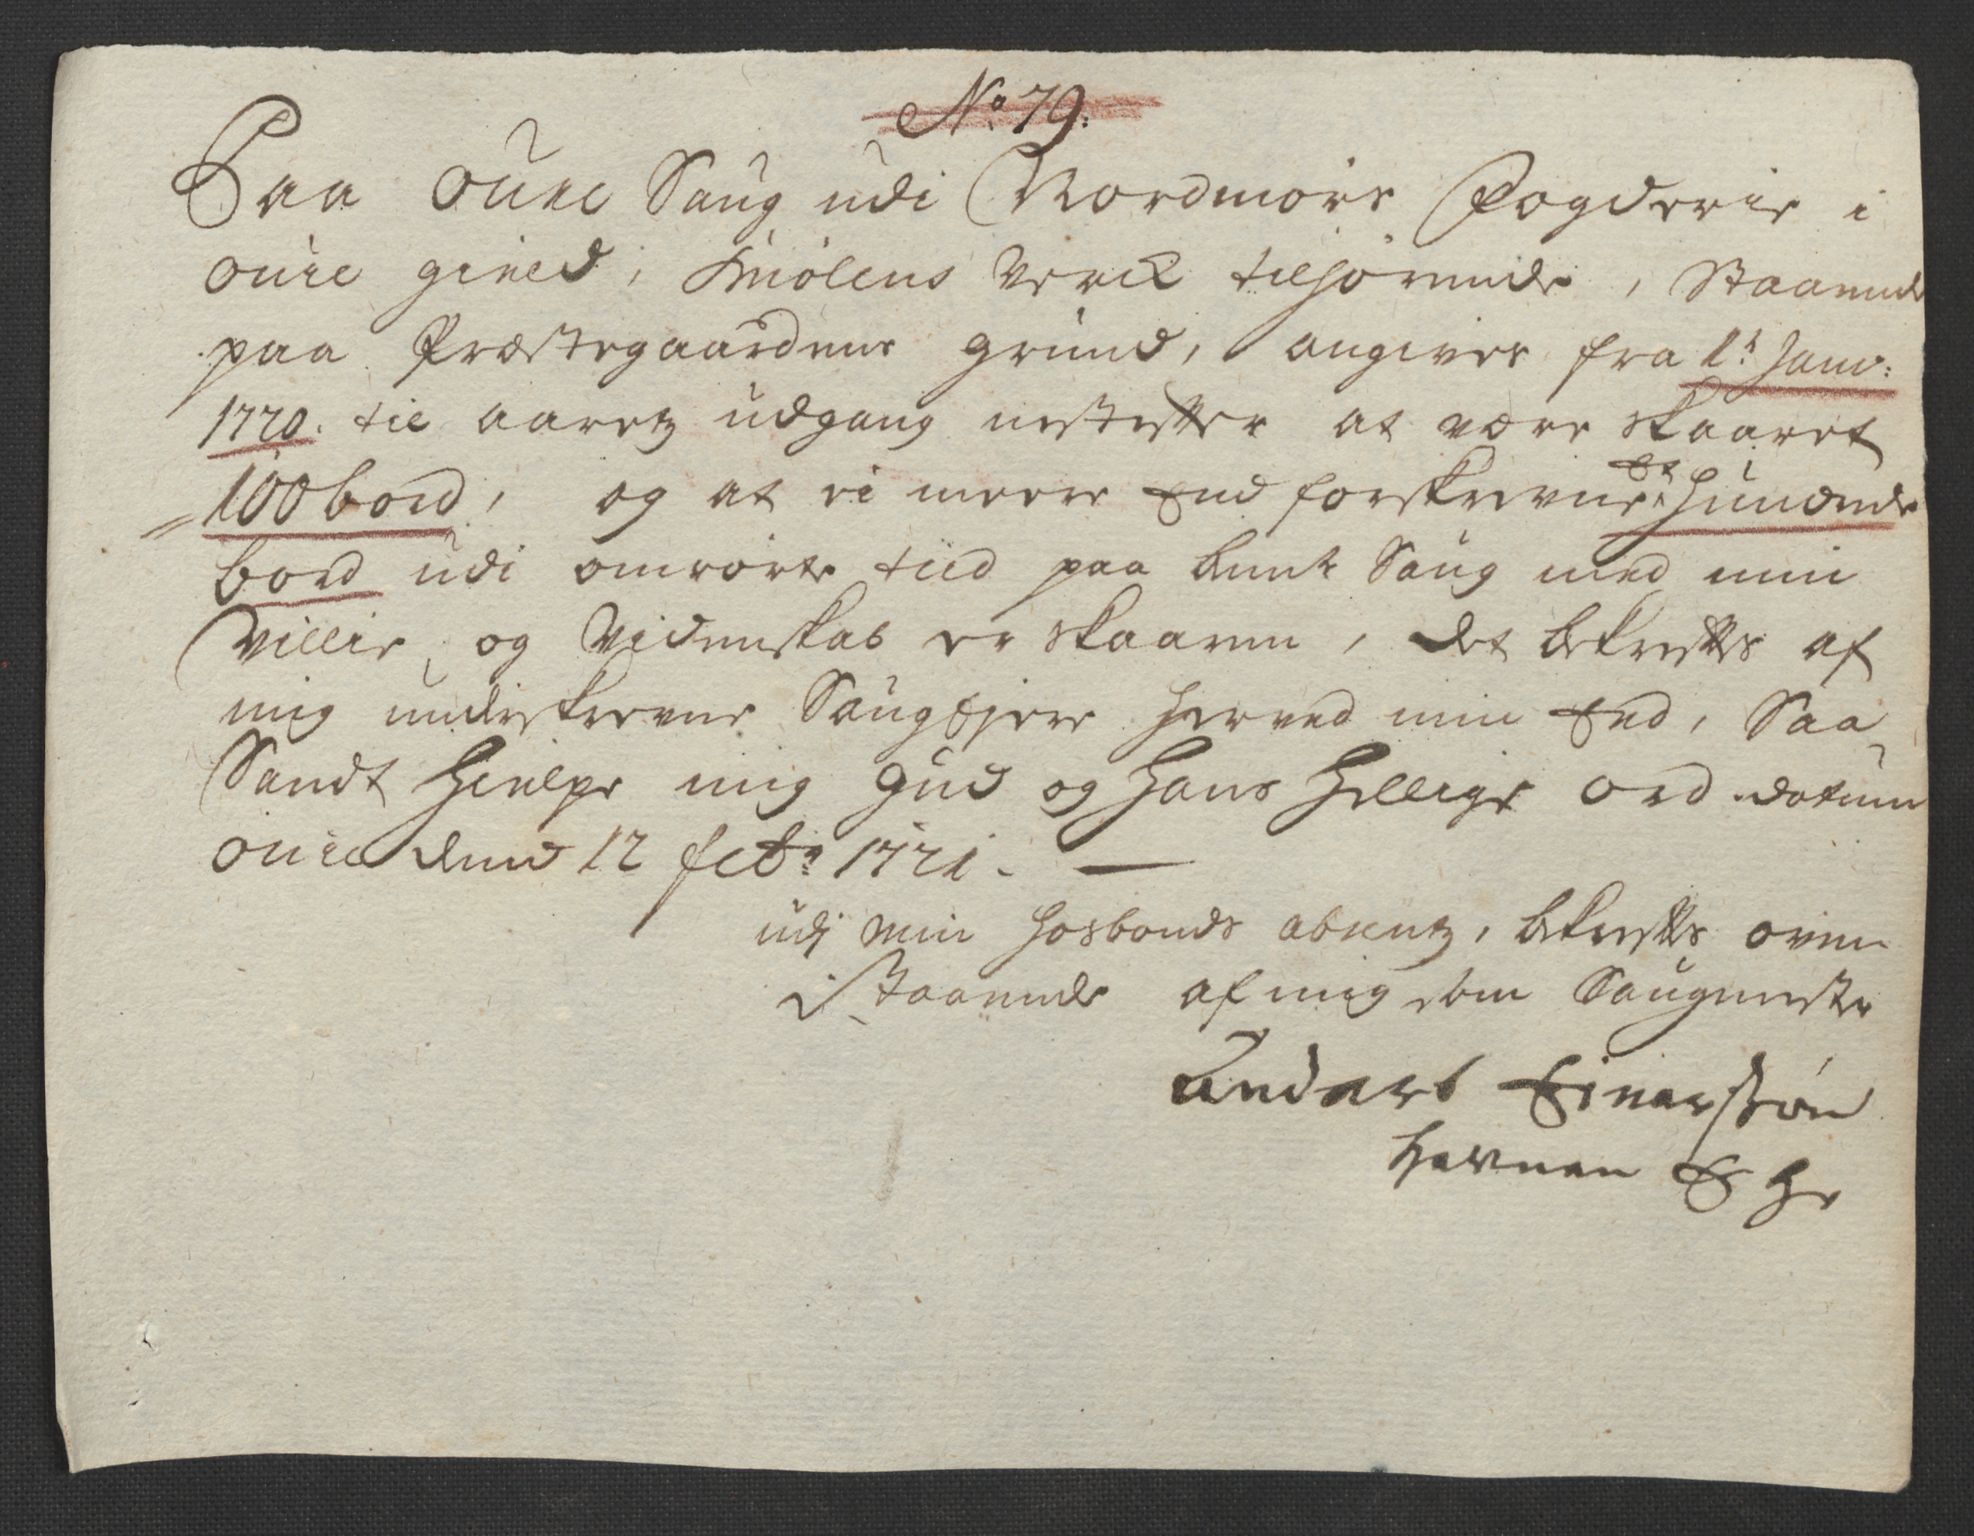 No 79.
Paa Oure Saug udi Nordmørs Fogderie i
Oure gield, Smölens Verck tilhörende, Staaende
paa Præstegaardens grund, angives fra 1t Janv:
1720. til aaretz udgang nestefter at være skaaret
100 bord, og at ei meere End forskrevne Et Hundrede
bord udi omrörte tiid paa bemte Saug med min
Villie og Videnskab er skaaren, det bekreftes af
mig underskrevne Saugeyere herved min Eed, Saa
Sandt Hielpe mig Gud og Hans Hellige Ord. datum
Oure dend 12 febr: 1721.
udj min Hosbonds absentz, bekreftes oven
Staaende af mig som Saugmester
Anders Einerssön
E H